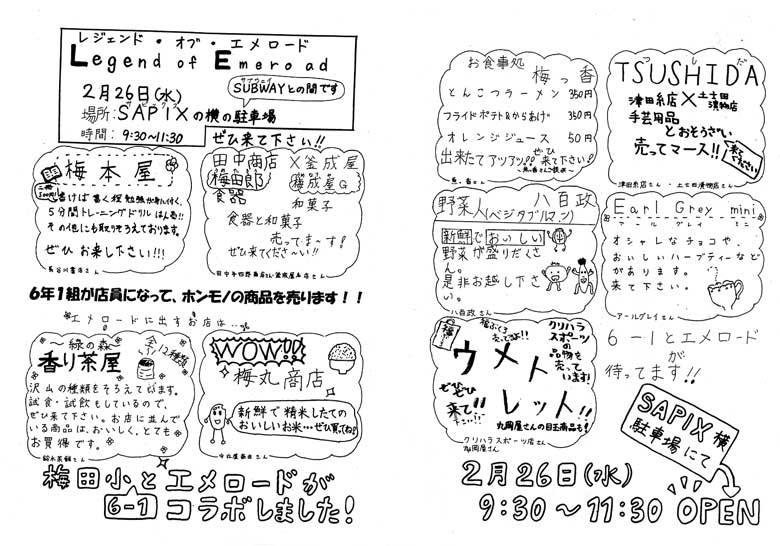 レジェンド・オブ・エメロード
Legend of Emeroad
2月26日(水)
サブウェイ
SUBWAYとの間です
サピックス
場所:SAPIXの横の駐車場
時間: 9:30~11:30
ぜひ来て下さい!!
梅本屋
書けば書く程勉強が身に付く、
5分間トレーニングドリルはんる!!
その他にも取りそろえております。
ぜひお来し下さい!!!
長谷川書店さん
田中商店×釜成屋
梅田郎 梅成屋G
食器 和菓子
食器と和菓子
売ってま~す!
ぜひ来てくださ~い!!
6年1組が店員になって、ホンモノの商品を売ります!!
エメロードに出すお店は…
~緑の森~
香り茶屋
全12種類
沢山の種類をそろえています。
試食・試飲もしているので、
ぜひ来て下さい。お店に並んで
いる商品は、おいしく、とても
お買得です。
鈴木茶舗さん
WOW!!
梅丸商店
新鮮で精米したての
おいしいお米…ぜひ買ってね!
梅田小とエメロードが
6-1
コラボしました!
お食事処
梅っ香
とんこつラーメン 350円
フライドポテト&からあげ 350円
オレンジジュース 50円
出来たてアツアツ!!ぜひ来て下さい!
つしだ
TSUSHIDA
津田糸店×土士田漬物店
手芸用品
とおそうざい
売ってマース!!
来てください
津田糸店さん・土士田漬物店さん
野菜人(ベジタブルマン)
八百政
新鮮でおいしい
野菜が盛りだくさ
ん。
是非お越し下さ
い。
八百政さん
Earl Grey mini
アールグレイ ミニ
オシャレなチョコや、
おいしいハーブティーなど
があります。
来て下さい。
アールグレイさん
福
福ぶくろ売ってます!!
クリハラスポーツの品物を売っています!
ウメトレット!!
ぜひぜひ来て!!
丸岡屋さんの目玉商品も!
クリハラスポーツ店さん
丸岡屋さん
6-1とエメロード
が
待ってます!!
SAPIX横
駐車場にて
2月26日(水)
9:30~11:30 OPEN